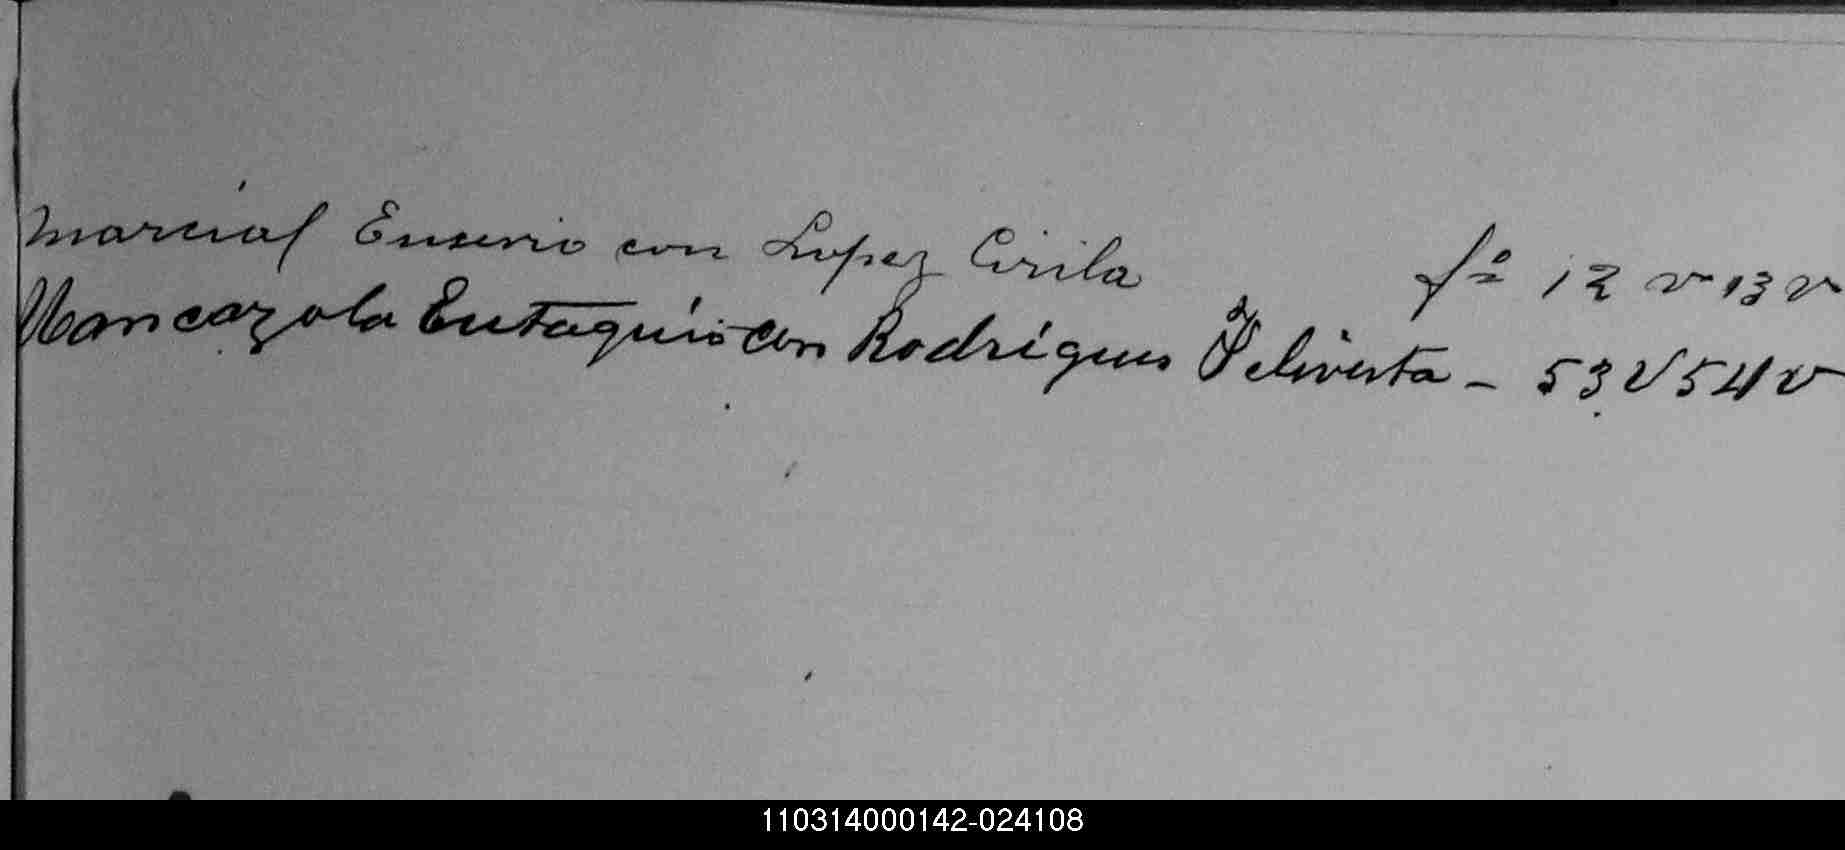 Marcial Enserio con Lopez Cirila fº 12 v 13 v
Mancazola Eutaquio con Rodrigues - 53 v 54 v
110314000142-024108